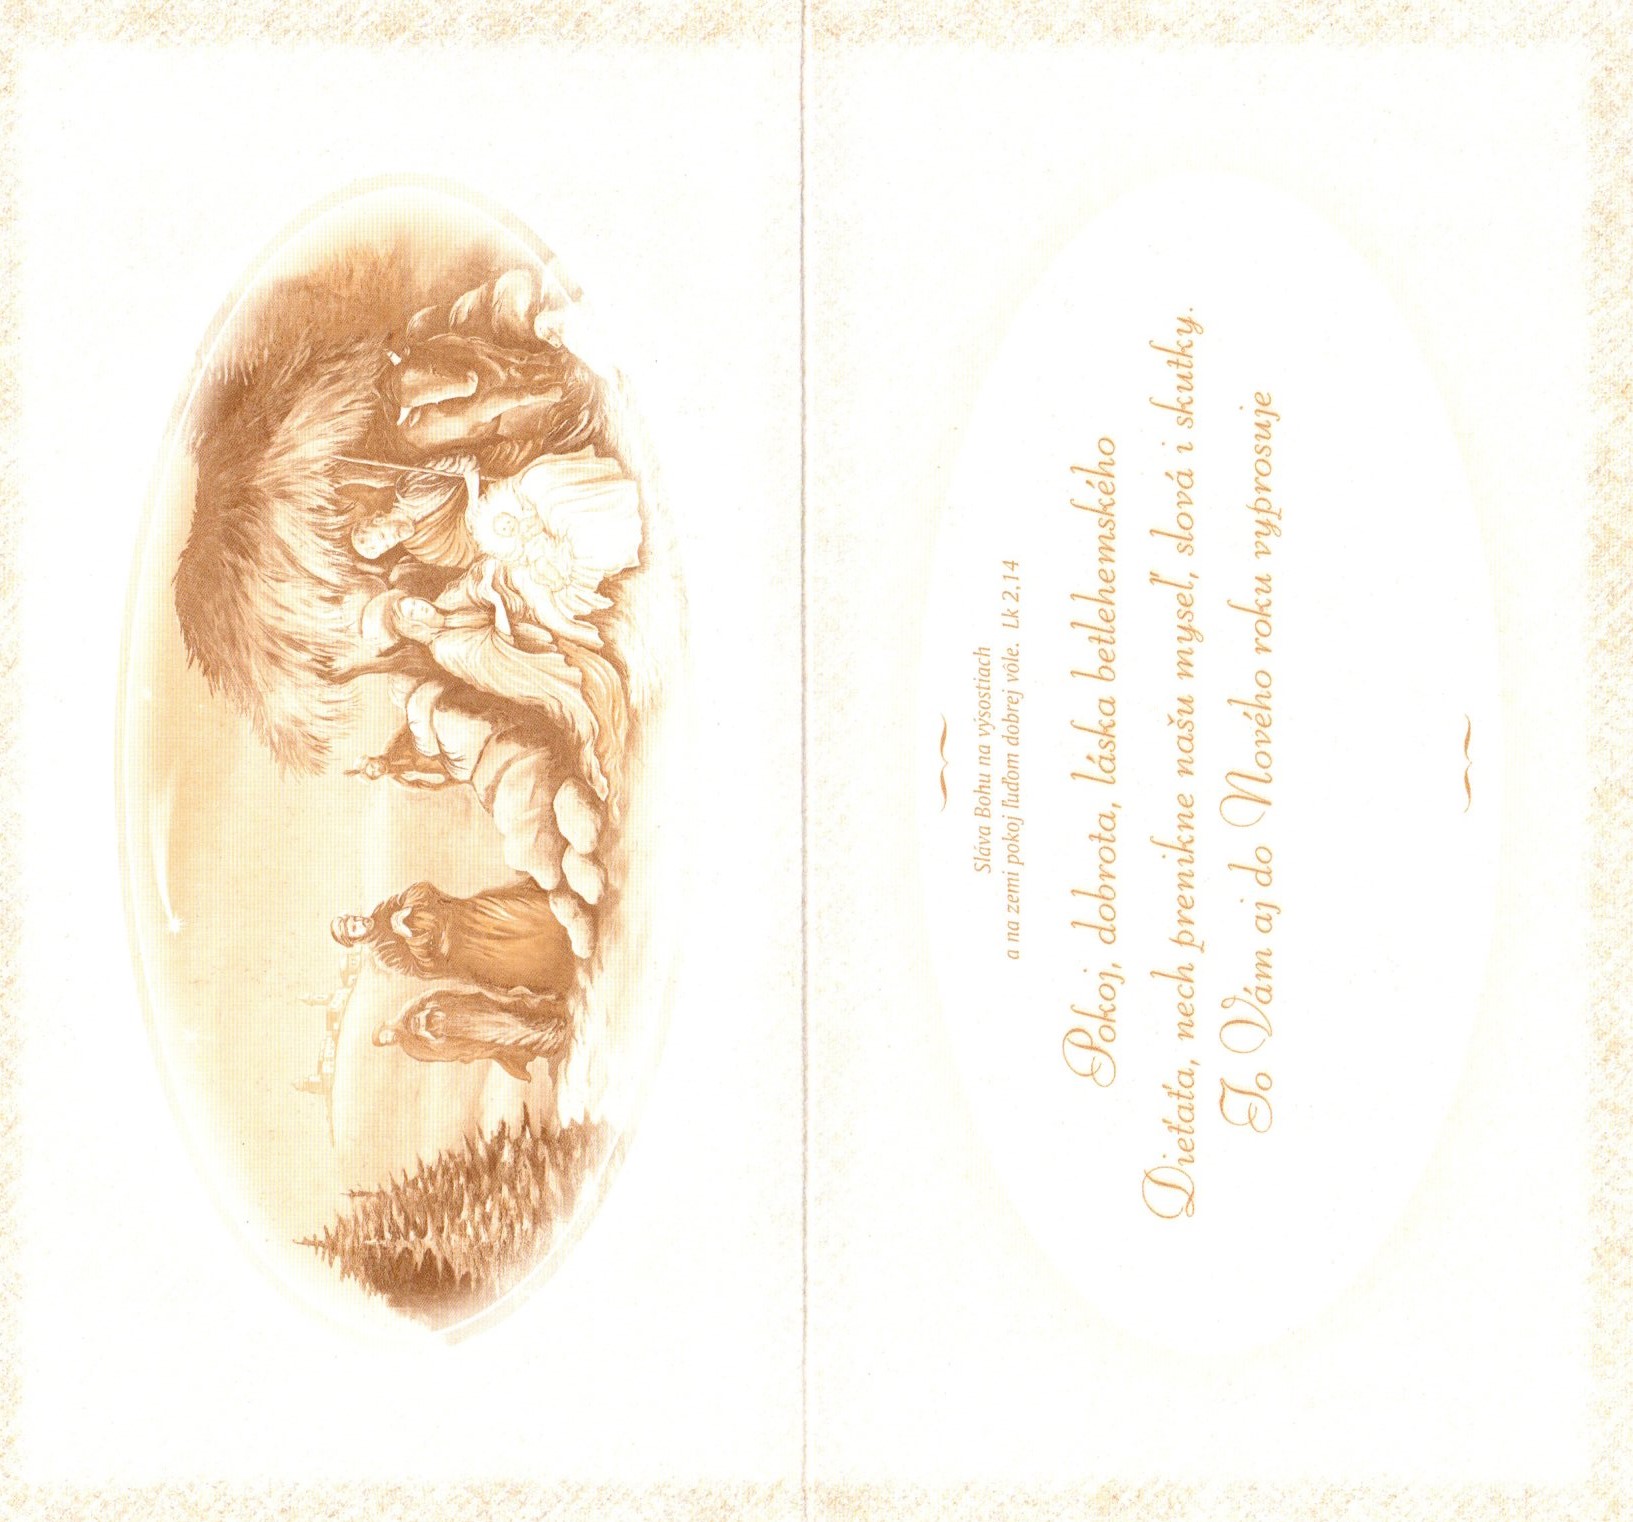 Sláva Bohu na výsostiach
a na zemi pokoj ľuďom dobrej vôle. Lk 2,14
Pokoj, dobrota, láska betlehemského
Dieťaťa, nech prenikne našu myseľ, slová i skutky.
To Vám aj do Nového roku vyprosuje